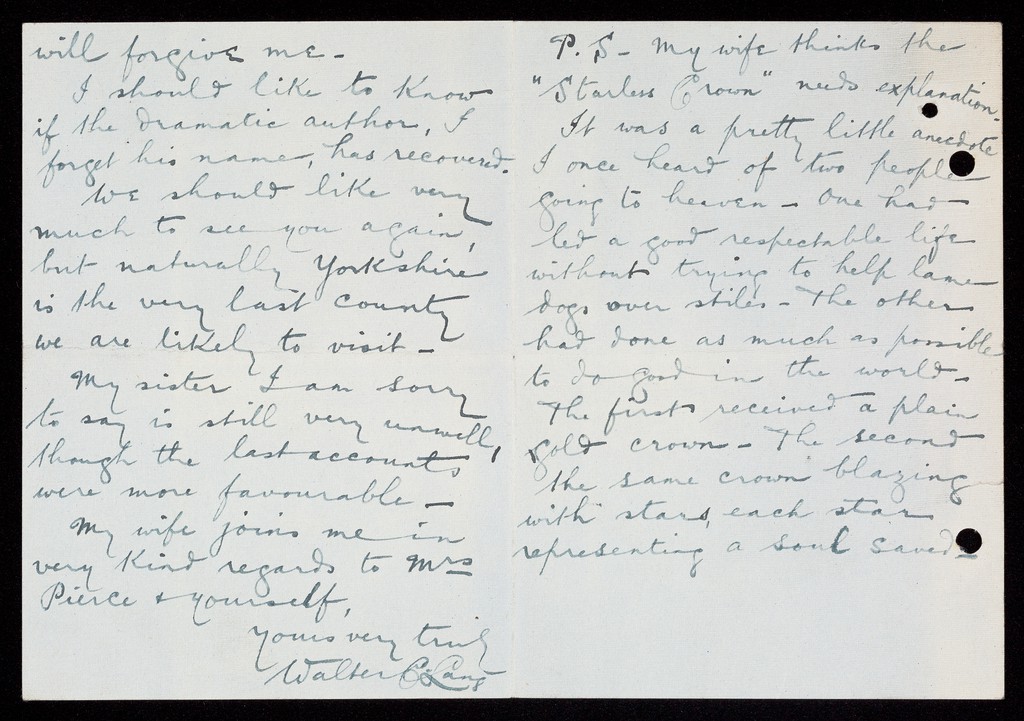 will forgive me -
I should like to know
if the dramatic author, I
forget his name, has recovered.
We should like very
much to see you again,
but naturally Yorkshire
is the very last county
we are likely to visit -
My sister I am sorry
to say is still very unwell,
though the last accounts
were more favourable -
My wife joins me in
very kind regards to Mrs
Pierce & yourself,
yours very truly
Walter C. Lang
P.S - My wife thinks the
"Starless Crown" needs explanation.
It was a pretty little anecdote
I once heard of two people
going to heaven - One had
led a good respectable life
without trying to help lame
dogs over stiles - The other
had done as much as possible
to do good in the world -
The first received a plain
gold crown - The second
the same crown blazing
with stars, each star
representing a soul saved -